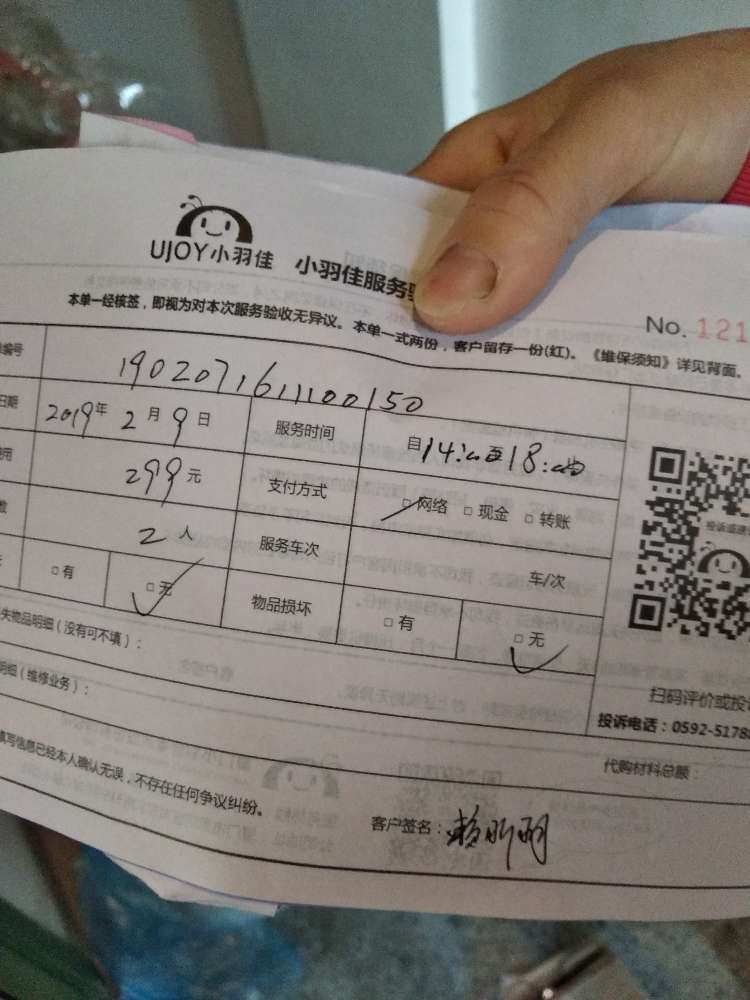 UJOY小羽佳 小羽佳服务
No. 121
本单一经核签，即视为对本次服务验收无异议。本单一式两份，客户留存一份(红)。《维保须知》详见背面。
编号 1902071611100150
日期 2019年 2月 9日 服务时间 自14:00至18:00
用 299元 支付方式 □网络 □现金 □转账
数 2人 服务车次 车/次
□有 □无 物品损坏 □有 □无
失物品明细（没有可不填）：
明细（维修业务）：
扫码评价或投
投诉电话：0592-5178
代购材料总额：
填写信息已经本人确认无误，不存在任何争议纠纷。
客户签名：赖昕明